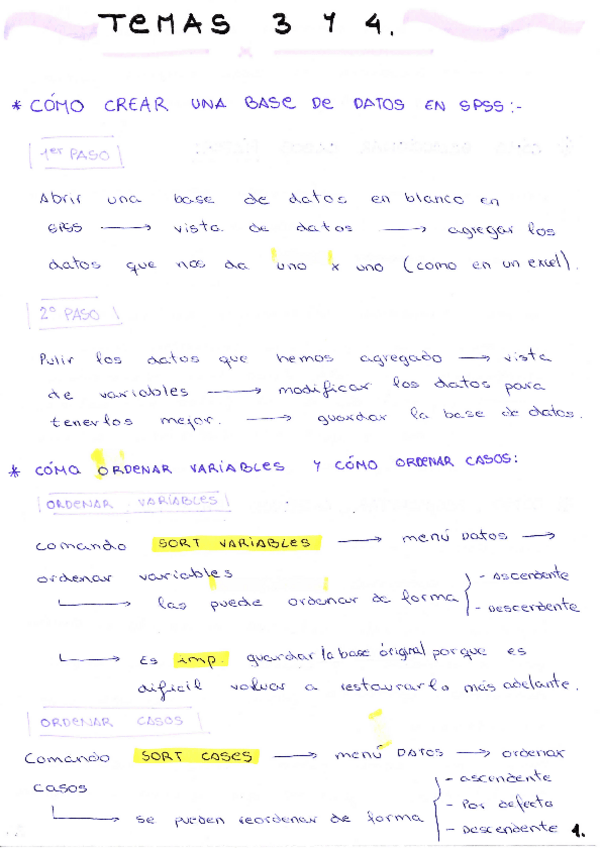 TEMAS 3 Y 4.
* CÓMO CREAR UNA BASE DE DATOS EN SPSS:-
1er PASO
Abrir una base de datos en blanco en
SPSS → vista de datos → agregar los
datos que nos da uno x uno (como en un excel).
2º PASO
Pulir los datos que hemos agregado → vista
de variables → modificar los datos para
tenerlos mejor. → guardar la base de datos.
* CÓMO ORDENAR VARIABLES Y CÓMO ORDENAR CASOS:
ORDENAR VARIABLES
comando SORT VARIABLES → menú Datos →
ordenar variables
las puede ordenar de forma
- Ascendente
- Descendente
Es imp. guardar la base original porque es
dificil volver a restaurarlo más adelante.
ORDENAR CASOS
Comando SORT CASES → menú DATOS → ordenar
casos
se pueden reordenar de forma
- ascendente
- Por defecto
- Descendente
1.